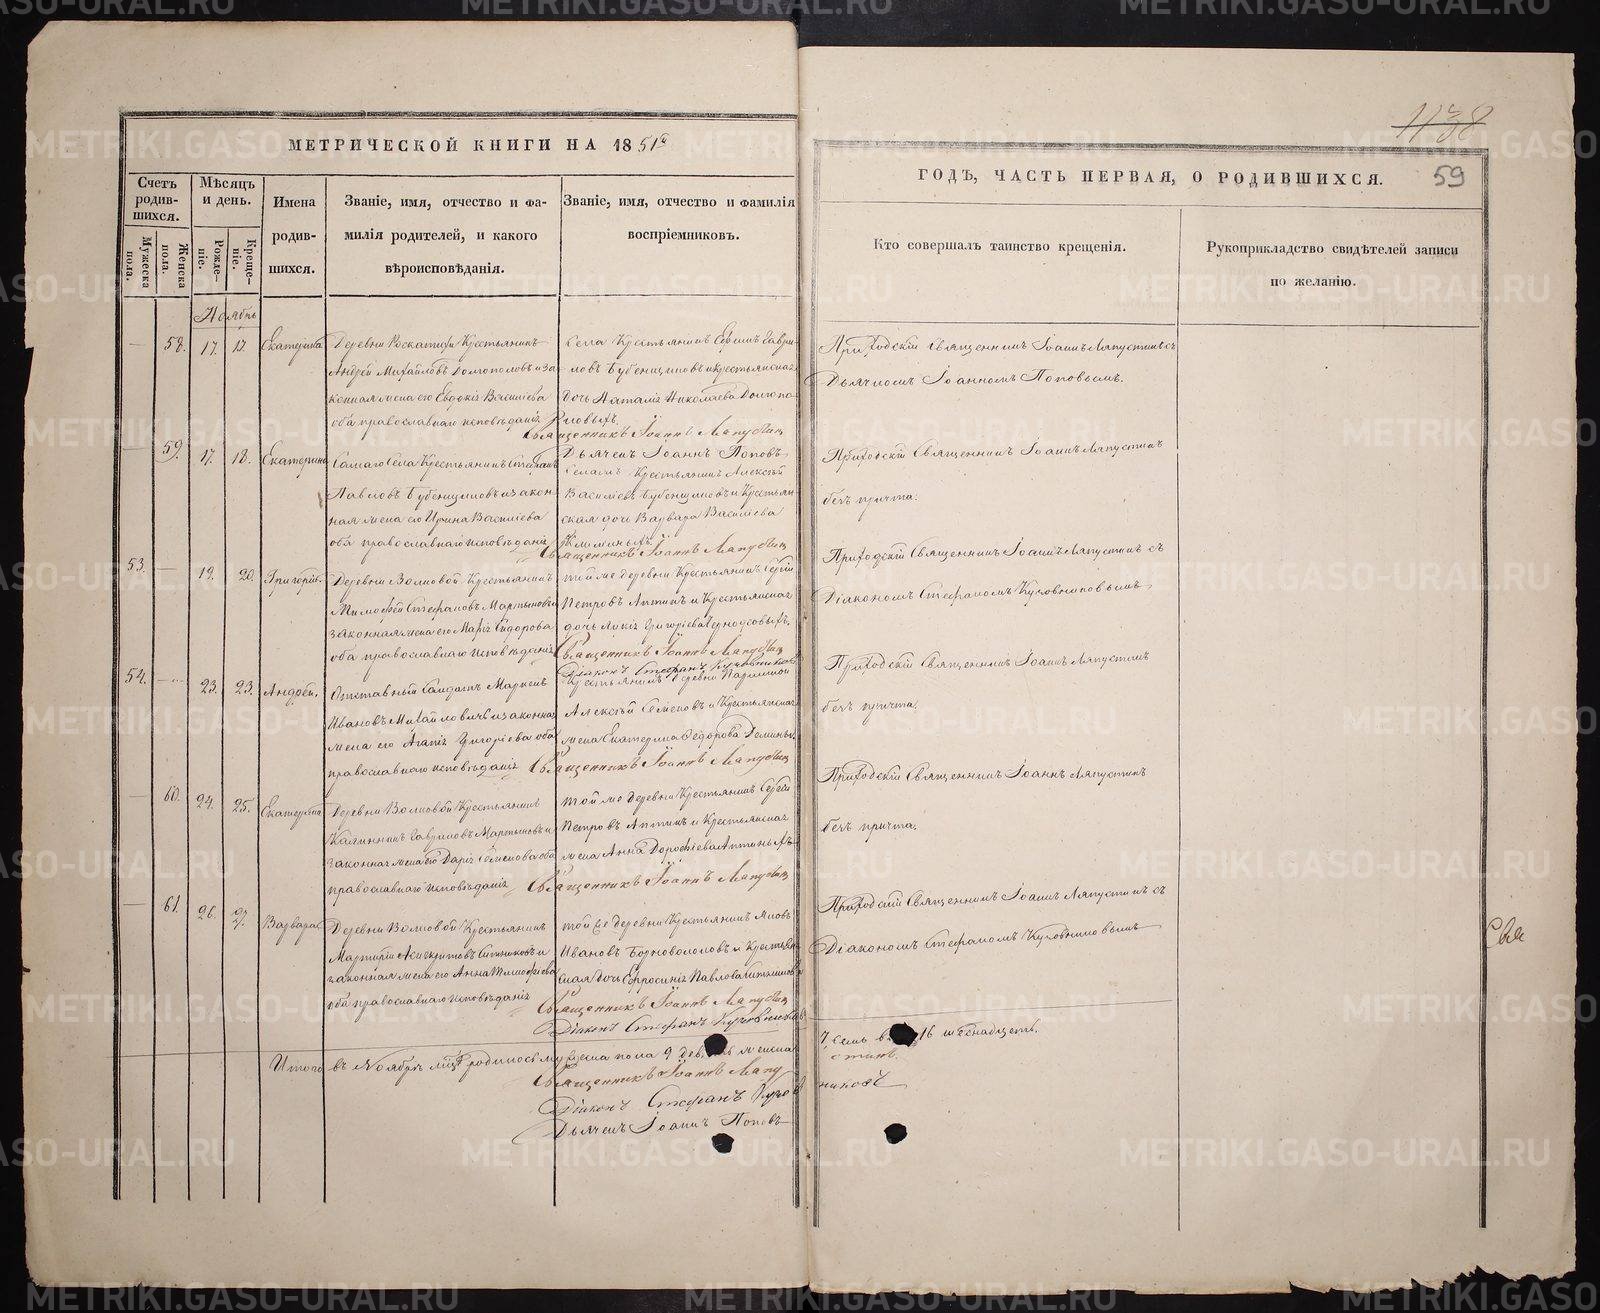 1138
МЕТРИЧЕСКОЙ КНИГИ НА 1851й
ГОДЪ, ЧАСТЬ ПЕРВАЯ, О РОДИВШИХСЯ.
59
Счетъ родив-шихся.
Мужеска пола.
Женска пола.
Мѣсяцъ и день.
Рожде-ніе.
Креще-ніе.
Имена родив-шихся.
Званіе, имя, отчество и фа-
милія родителей, и какого
вѣроисповѣданія.
Званіе, имя, отчество и фамилія
воспріемниковъ.
Кто совершалъ таинство крещенія.
Рукоприкладство свидѣтелей записи
по желанію.
Ноябрь
58. 17. 17. Екатерина
Деревни Крестьянинъ
Андрей Михайловъ Долгополовъ и за
конная жена его Евдокія Василіева
оба православнаго исповѣданія
Села Крестьянинъ Сергій Гаври-
ловъ Бубенщиковъ и крестьянская
дочь Наталія Николаева Долгопо-
ловыхъ.
Священникъ Іоаннъ Лапустин
Дьячекъ Іоаннъ Поповъ
Приходскій Священникъ Іоаннъ Ляпустинъ съ
Дьячкомъ Іоанномъ Поповымъ.
59. 17. 18. Екатерина
Самаго Села Крестьянинъ Стефанъ
Павловъ Бубенщиковъ и закон-
ная жена его Ирина Василіева
оба православнаго исповѣданія
Селамъ Крестьянинъ Алексѣй
Василіевъ Бубенщиковъ и Крестьян-
ская дочь Варвара Василіева
Священникъ Іоаннъ Лапустин
Приходскій Священникъ Іоаннъ Ляпустинъ
безъ причта.
53. 19. 20. Григорій.
Деревни Волковой Крестьянинъ
Тимофей Стефановъ Мартыновъ и
законная жена его Марія Сидорова
оба православнаго исповѣданія
той же деревни Крестьянинъ Сергій
Петровъ Аптинъ и Крестьянская
дочь Лукія Григоріева Черноусовыхъ.
Священникъ Іоаннъ Лапустин
Діаконъ Стефанъ Кузовниковъ
Приходскій Священникъ Іоаннъ Ляпустинъ съ
Діакономъ Стефаномъ Кузовниковымъ
54. 23. 23. Андрей.
Отставный Солдатъ Маркелъ
Ивановъ Михайловичь и законная
жена его Агапія Григоріева оба
православнаго исповѣданія
Крестьянинъ деревни
Алексѣй Семеновъ и Крестьянская
жена Екатерина Ѳедорова
Священникъ Іоаннъ Лапустин
Приходскій Священникъ Іоаннъ Ляпустинъ
безъ причта.
60. 24. 25. Екатерина
Деревни Волковой Крестьянинъ
Калинникъ Гавриловъ Мартыновъ и
законная жена его Дарія Семенова оба
православнаго исповѣданія
той же деревни Крестьянинъ Сергій
Петровъ Аптинъ и Крестьянская
жена Анна Дорофіева Аптиныхъ
Священникъ Іоаннъ Лапустин
Приходскій Священникъ Іоаннъ Ляпустинъ
безъ причта.
61. 26. 27. Варвара
Деревни Волковой Крестьянинъ
Мартирій Ситниковъ и
законная жена его Анна Тимофіева
оба православнаго исповѣданія
той же деревни Крестьянинъ Яковъ
Ивановъ Борноволоковъ и Крестьян
ская дочь Евфросинія Павлова Ситникова
Священникъ Іоаннъ Лапустин
Діаконъ Стефанъ Кузовниковъ
Приходскій Священникъ Іоаннъ Ляпустинъ съ
Діакономъ Стефаномъ Кузовниковымъ
Свя
Итого въ Ноябрѣ мцѣ родилось мужеска пола 9 девять женска
7 семь 16 шеснадцеть.
Священникъ Іоаннъ Лапу стинъ.
Діаконъ Стефанъ Кузов никовъ
Дьячекъ Іоаннъ Поповъ
METRIKI.GASO-URAL.RU